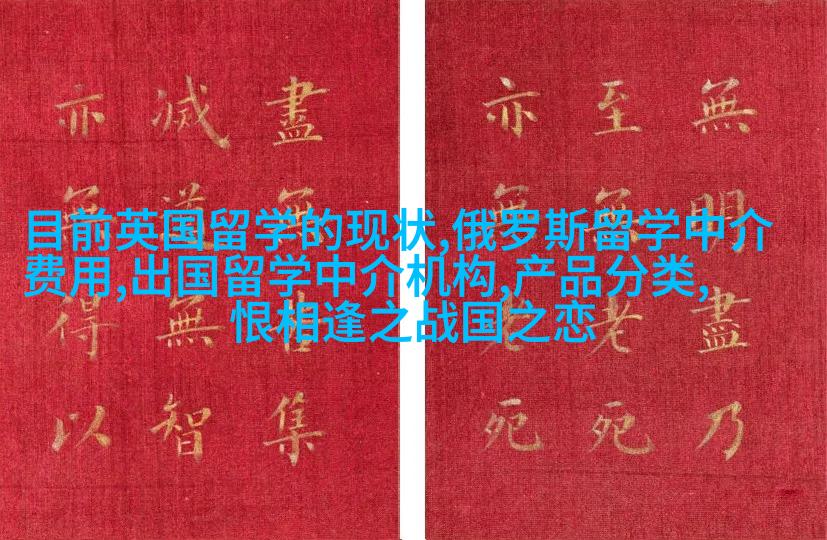 目前英国留学的现状,俄罗斯留学中介
费用,出国留学中介机构,产品分类,
恨相逢之战国之恋
無明盡乃
至無老死
亦無老死
盡無苦集
滅道無智
亦無得以